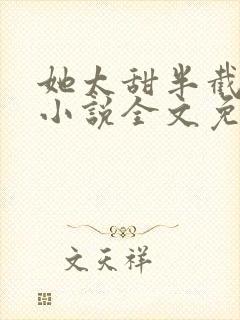 她太甜半截
小説全文免
文天祥